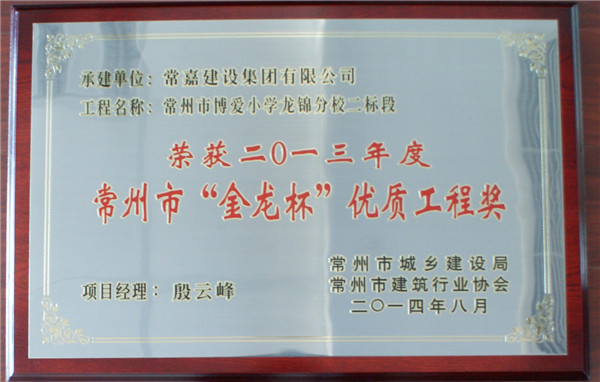 承建单位：常嘉建设集团有限公司
工程名称：常州市博爱小学龙锦分校二标段
荣获二〇一三年度
常州市“金龙杯”优质工程奖
常州市城乡建设局
常州市建筑行业协会
项目经理：殷云峰
二〇一四年八月